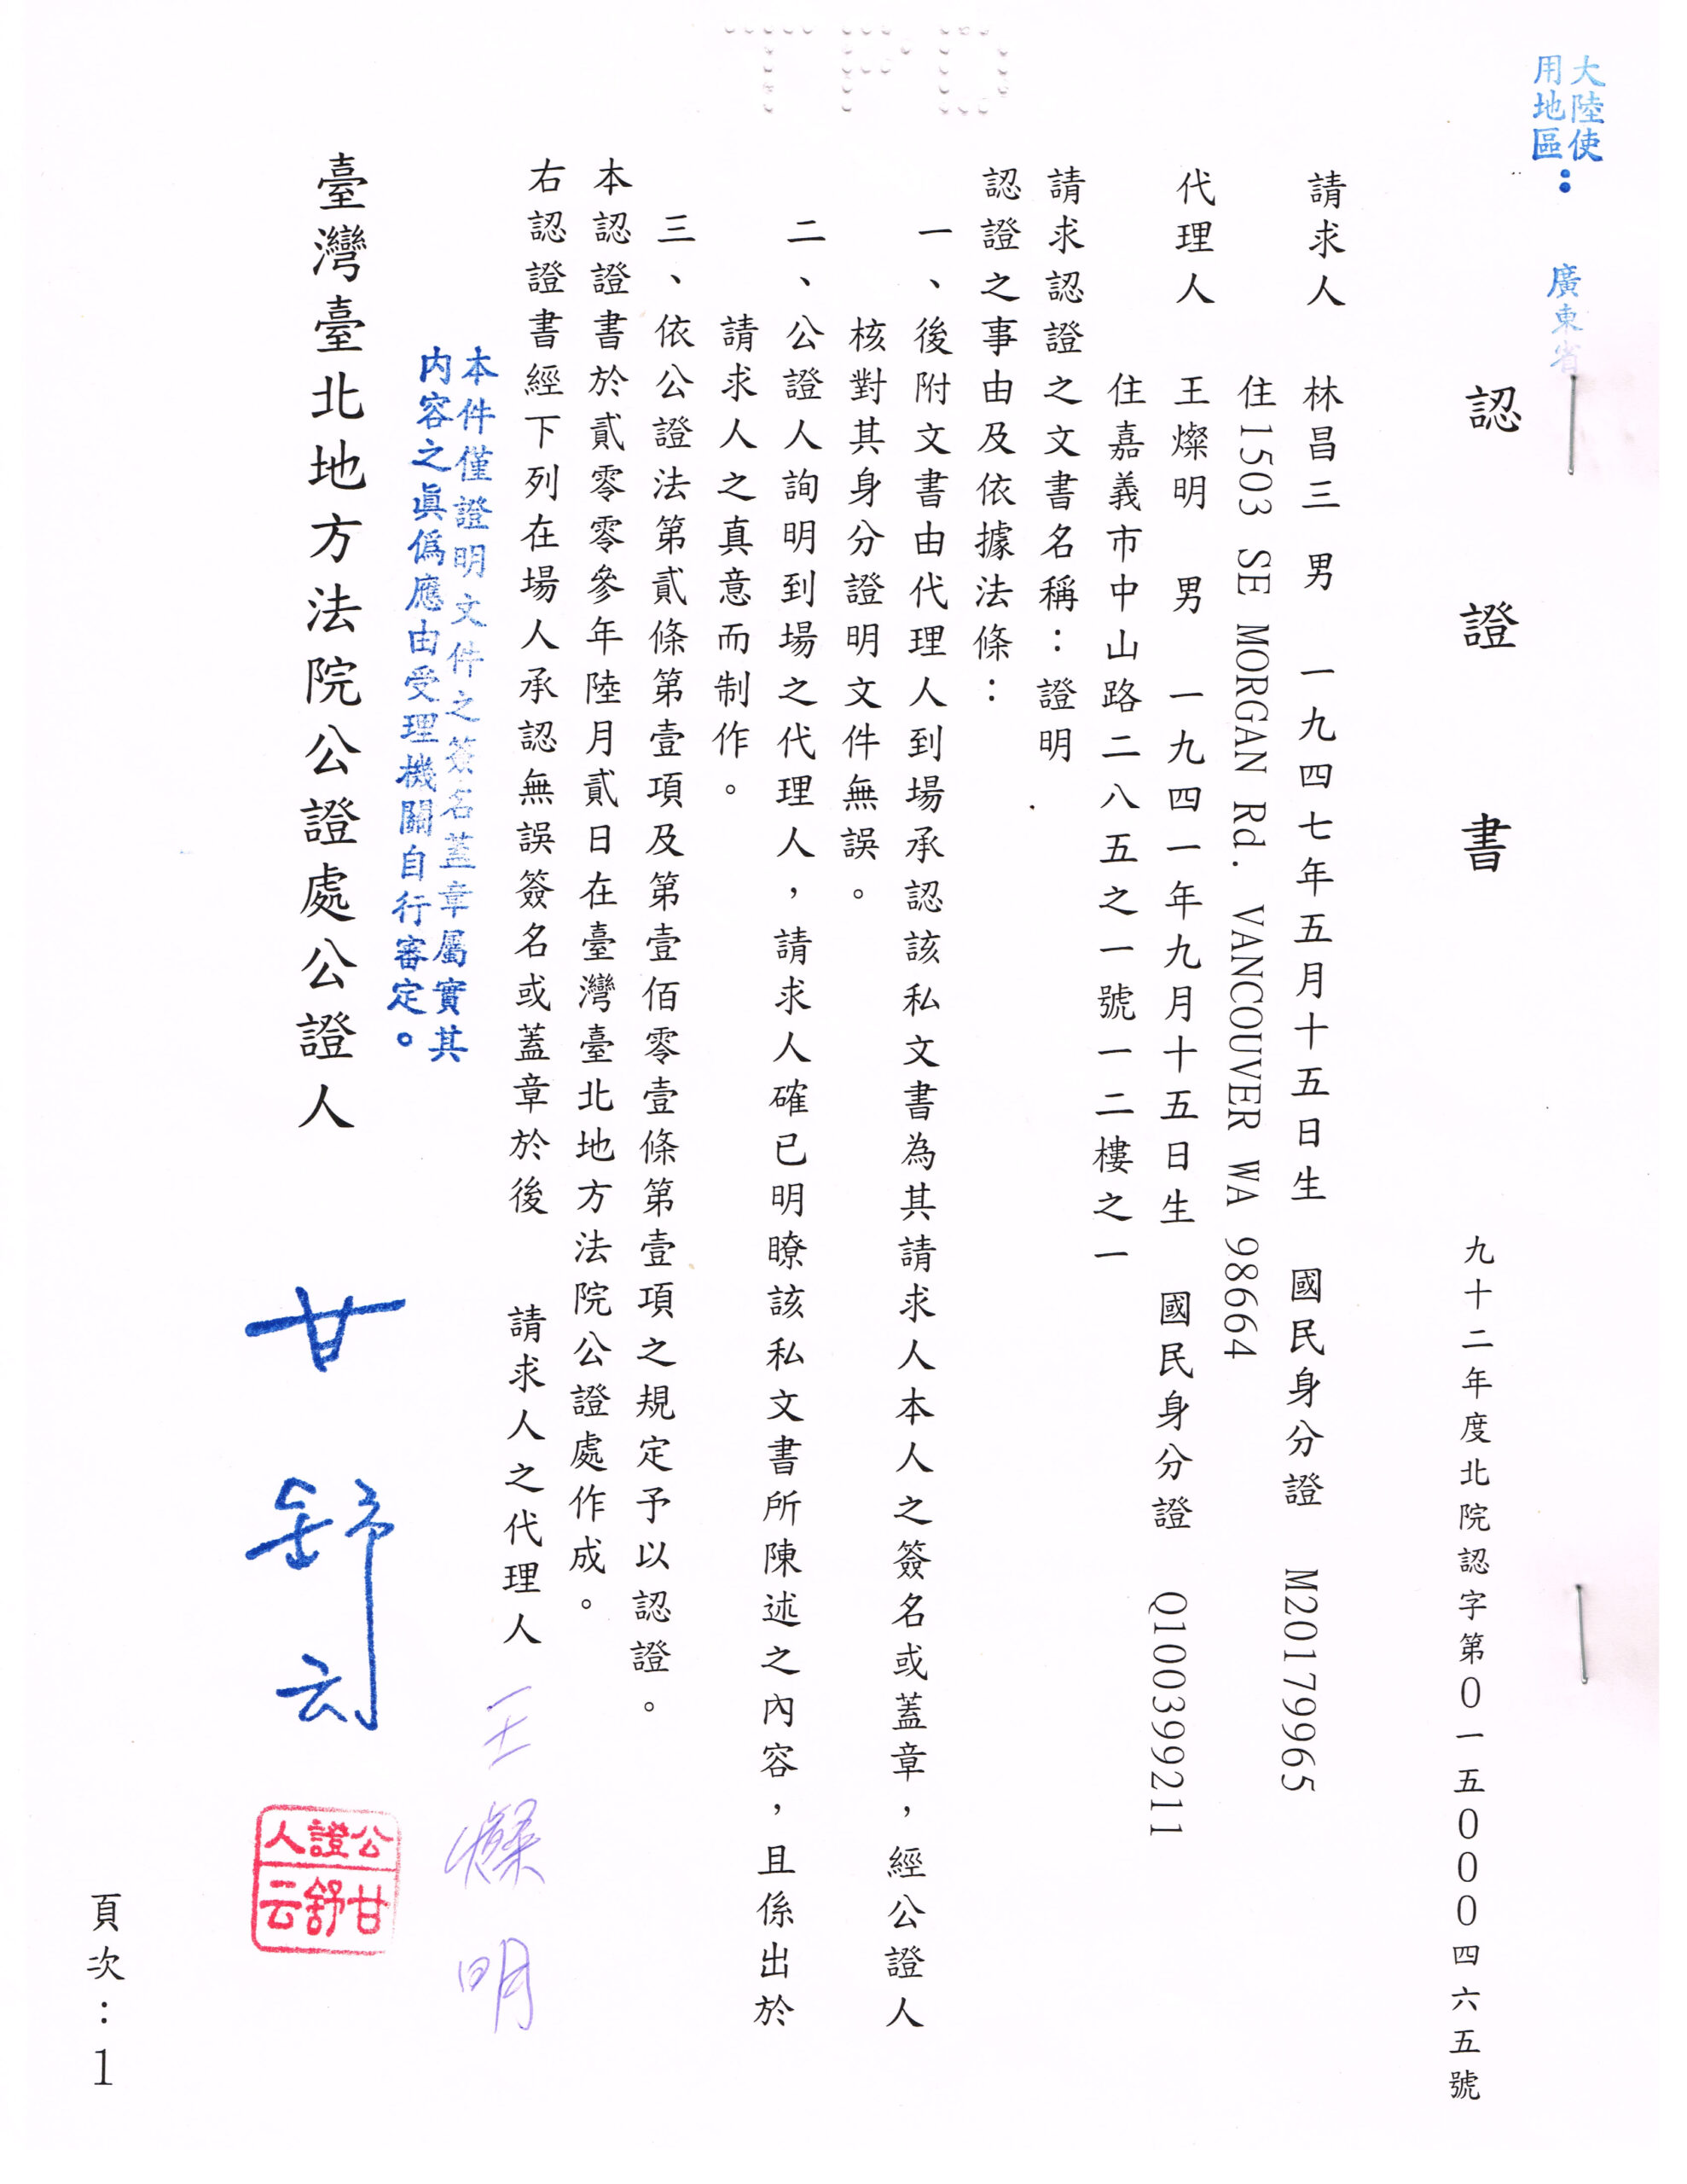 大陸使
用地區：
廣東省
認證書
九十二年度北院認字第0一五000四六五號
請求人　林昌三　男　一九四七年五月十五日生　國民身分證　M20179965
住1503 SE MORGAN Rd. VANCOUVER WA 98664
代理人　王燦明　男　一九四一年九月十五日生　國民身分證　Q100399211
住嘉義市中山路二八五之一號一二樓之一
請求認證之文書名稱：證明
認證之事由及依據法條：
一、後附文書由代理人到場承認該私文書為其請求人本人之簽名或蓋章，經公證人
核對其身分證明文件無誤。
二、公證人詢明到場之代理人，請求人確已明瞭該私文書所陳述之內容，且係出於
請求人之真意而制作。
三、依公證法第貳條第壹項及第壹佰零壹條第壹項之規定予以認證。
本認證書於貳零零參年陸月貳日在臺灣臺北地方法院公證處作成。
右認證書經下列在場人承認無誤簽名或蓋章於後　請求人之代理人　王燦明
本件僅證明文件之簽名蓋章屬實其
內容之眞偽應由受理機關自行審定。
臺灣臺北地方法院公證處公證人　甘舒云
公證人
甘舒云
頁次：1
TPD